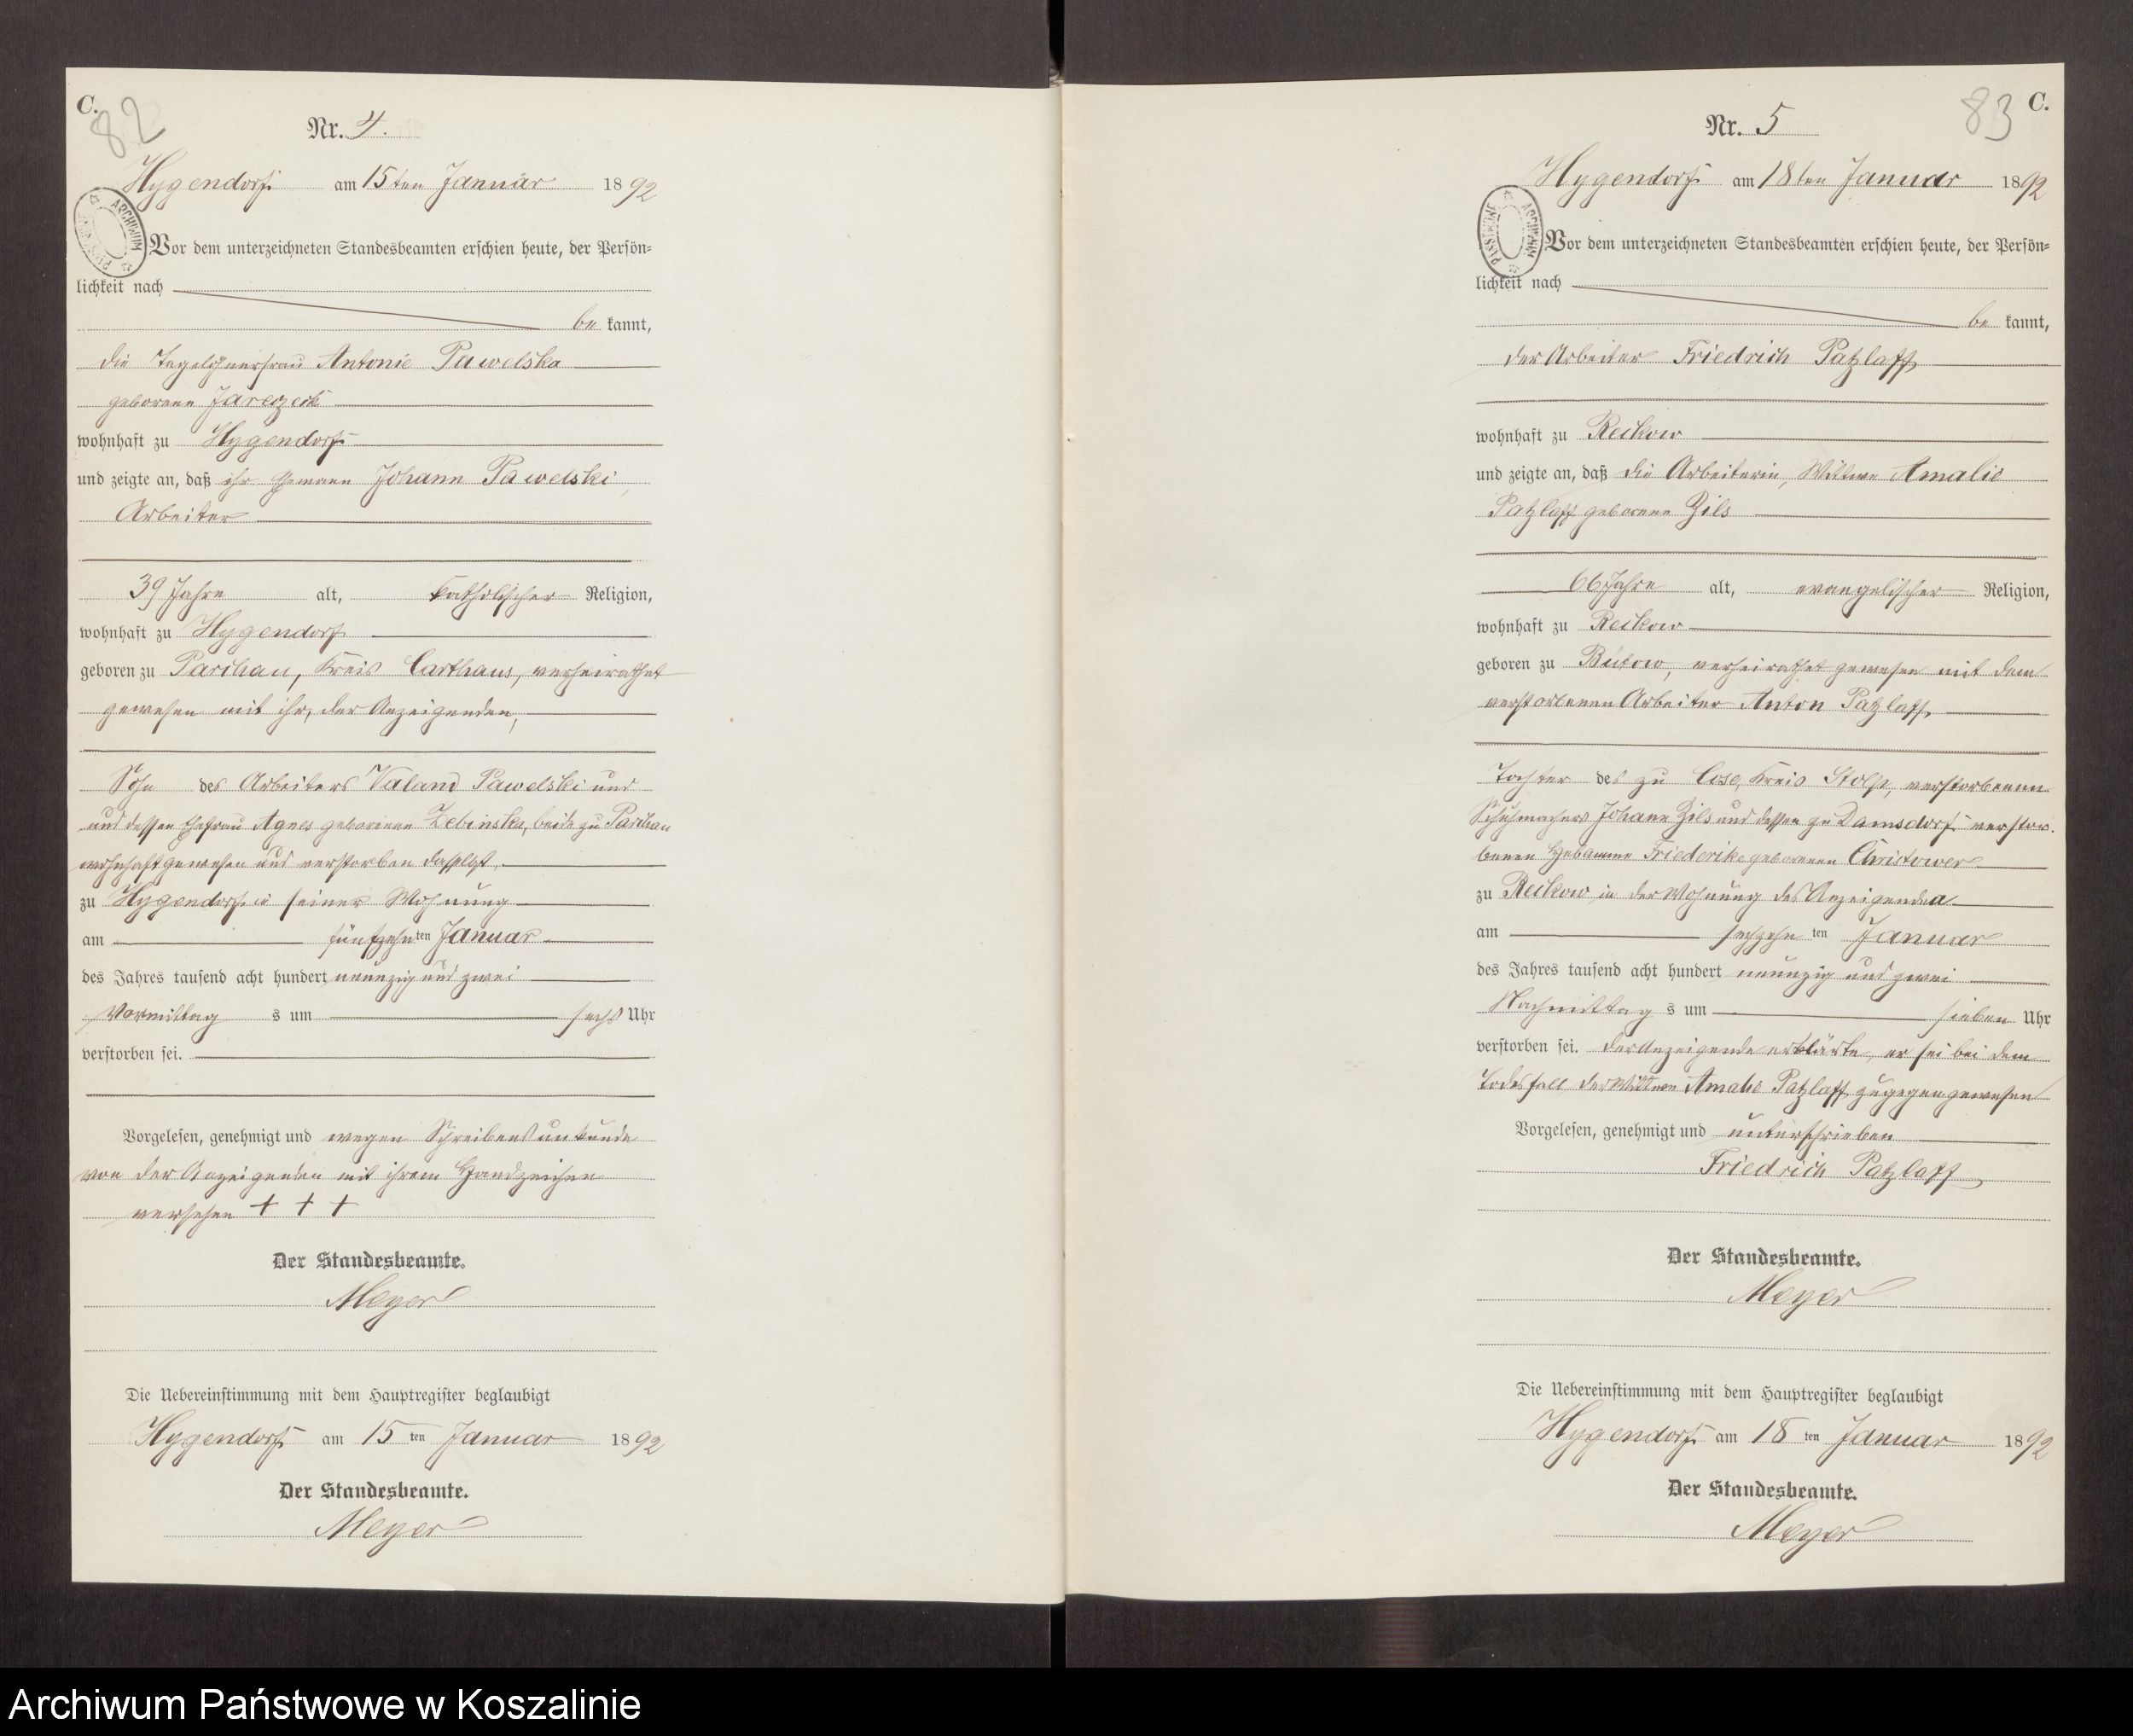 C.
82
Nr. 4.
Hygendorf am 15ten Januar 1892
ARCHIWUM PAŃSTWOWE
Vor dem unterzeichneten Standesbeamten erschien heute, der Persön-
lichkeit nach
be kannt,
die Tagelöhnerfrau Antonie Pawelska
geborene Jareczek
wohnhaft zu Hygendorf
und zeigte an, daß ihr Ehemann Johann Pawelski,
Arbeiter
39 Jahre alt, katholischer Religion,
wohnhaft zu Hygendorf
geboren zu Parchau, Kreis Carthaus, verheirathet
gewesen mit ihr, der Anzeigenden,
Sohn des Arbeiters Valand Pawelski und
und dessen Ehefrau Agnes geborenen Zebinska, beide zu Parchau
wohnhaft gewesen und verstorben daselbst,
zu Hygendorf in seiner Wohnung
am fünfzehnten Januar
des Jahres tausend acht hundert neunzig und zwei
Vormittag s um sechs Uhr
verstorben sei.
Vorgelesen, genehmigt und wegen Schreibensunkunde
von der Anzeigenden mit ihrem Handzeichen
versehen + + +
Der Standesbeamte.
Meyer
Die Uebereinstimmung mit dem Hauptregister beglaubigt
Hygendorf am 15 ten Januar 1892
Der Standesbeamte.
Meyer
83 C.
Nr. 5
Hygendorf am 18ten Januar 1892
ARCHIWUM PAŃSTWOWE
Vor dem unterzeichneten Standesbeamten erschien heute, der Persön-
lichkeit nach
be kannt,
der Arbeiter Friedrich Patzlaff
wohnhaft zu Reckow
und zeigte an, daß die Arbeiterin, Wittwe Amalie
Patzlaff geborene Zils
66 Jahre alt, evangelischer Religion,
wohnhaft zu Reckow
geboren zu Bütow, verheirathet gewesen mit dem
verstorbenen Arbeiter Anton Patzlaff,
Tochter des zu Cose, Kreis Stolp, verstorbenen
Schuhmachers Johann Zils und dessen zu Damsdorf verstor-
benen Hebamme Friederike geborenen Christower
zu Reckow in der Wohnung des Anzeigenden
am sechzehn ten Januar
des Jahres tausend acht hundert neunzig und zwei
Nachmittag s um sieben Uhr
verstorben sei. Der Anzeigende erklärte, er sei bei dem
Todesfall der Wittwe Amalie Patzlaff zugegen gewesen
Vorgelesen, genehmigt und unterschrieben
Friedrich Patzlaff
Der Standesbeamte.
Meyer
Die Uebereinstimmung mit dem Hauptregister beglaubigt
Hygendorf am 18 ten Januar 1892
Der Standesbeamte.
Meyer
Archiwum Państwowe w Koszalinie